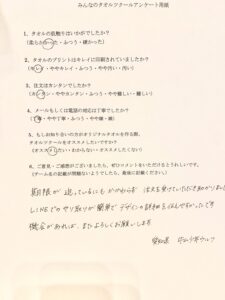 みんなのタオルツクールアンケート用紙
1. タオルの肌触りはいかがでしたか？
（柔らかかった・ふつう・硬かった）
2. タオルのプリントはキレイに印刷されていましたか？
（キレイ・ややキレイ・ふつう・やや汚い・汚い）
3. 注文はカンタンでしたか？
（カンタン・ややカンタン・ふつう・やや難しい・難しい）
4. メールもしくは電話の対応は丁寧でしたか？
（丁寧・やや丁寧・ふつう・やや雑・雑）
5. もしお知り合いの方がオリジナルタオルを作る際、
タオルツクールをオススメしたいですか？
（オススメしたい・わからない・オススメしたくない）
6. ご意見・ご感想がございましたら、ぜひコメントをいただけるとうれしいです。
（チーム名の記載が問題ないようでしたら、最後に記載ください）
期限が迫っているにもかかわらず、注文を受けていただき助かりました
LINEでのやり取りが簡単でデザインの詳細も伝えやすかったです
機会があれば、またよろしくお願いします
愛知県